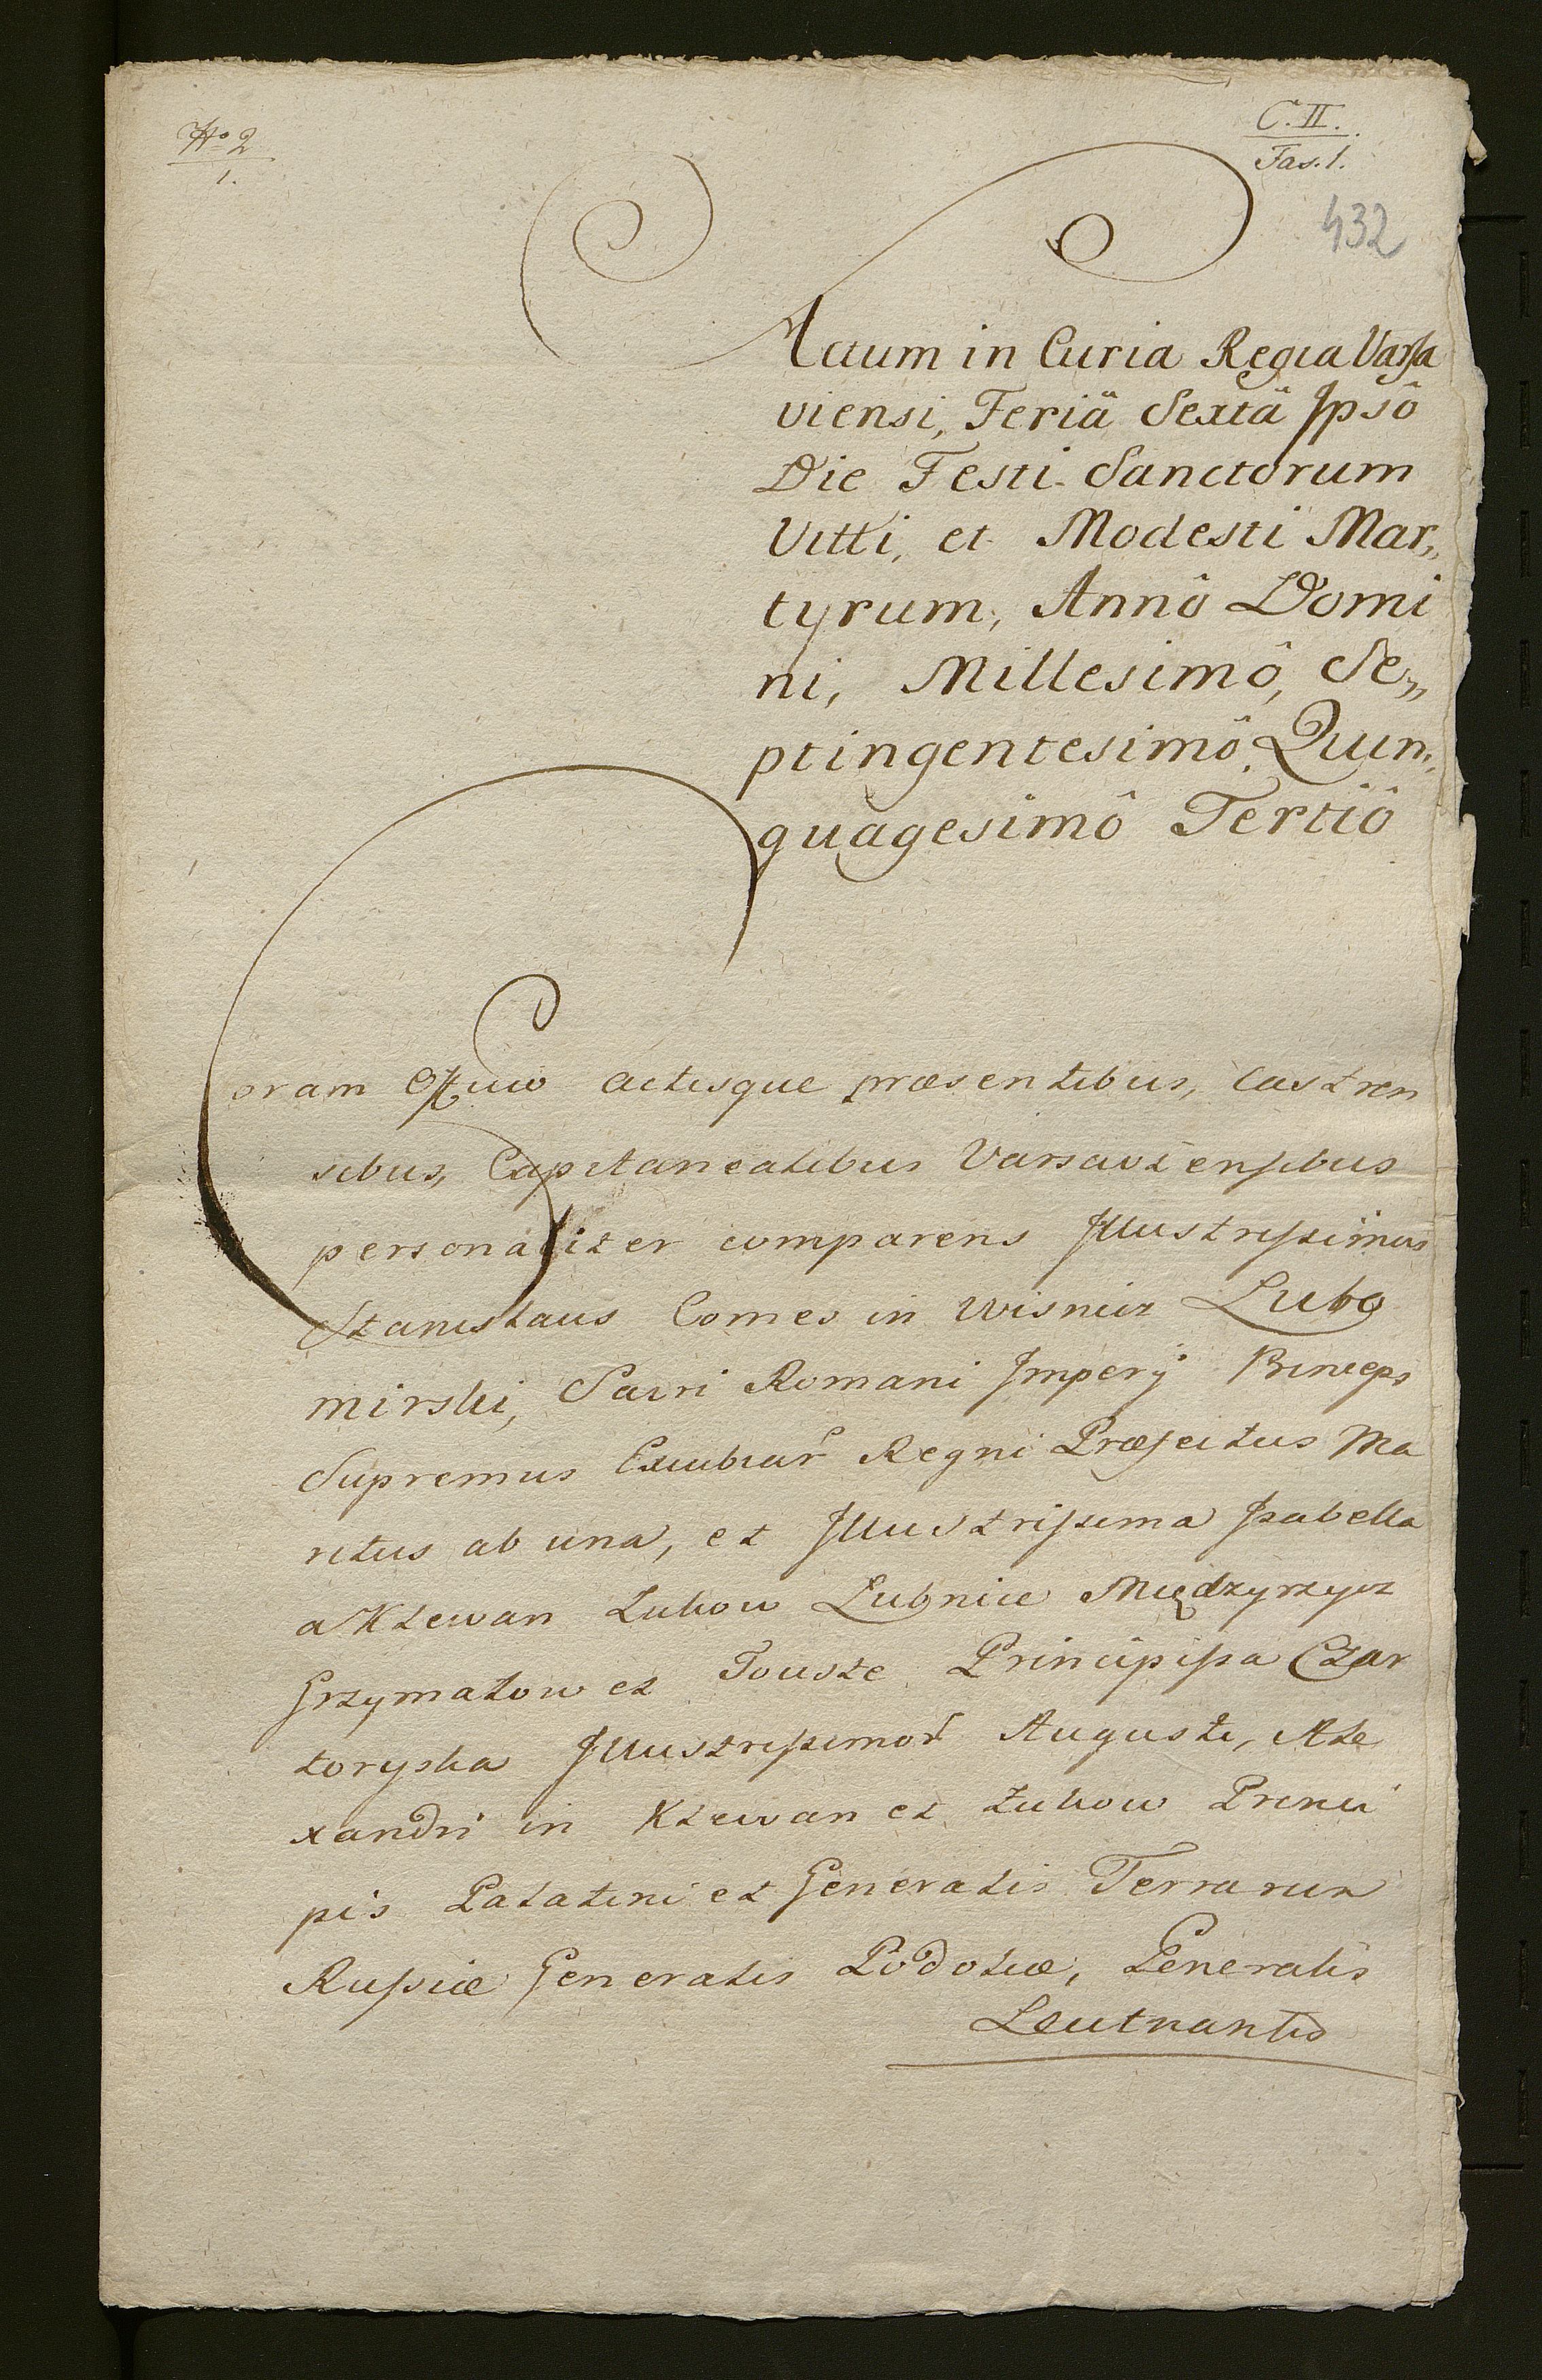 No 2
1.
C. II.
Fas. 1.
432
Actum in Curia Regia Varsa
viensi, Feriâ Sextâ Ipsô
Die Festi Sanctorum
Vitti, et Modesti Mar„
tyrum, Annô Domi
ni, Millesimô, Se„
ptingentesimô, Quin„
quagesimô Tertiô
Coram Officio Actisque præsentibus, Castren
sibus, Capitanealibus Varsaviensibus
personaliter comparens Illustrissimus
Stanislaus Comes in Wisnicz Lubo
mirski, Sacri Romani Imperÿ Princeps
Supremus Excubiar Regni Præfectus Ma
ritus ab una, et Illustrissima Isabella
a Klewan Zukow Lubnice Międzyrzycz
Grzymałow et Touste Principissa Czar
toryska Illustrissimor Augusti, Ale
xandri in Klewan et Zukow Princi
pis Palatini et Generalis Terrarum
Russiæ Generalis Podoliæ, Generalis
Leutnantis